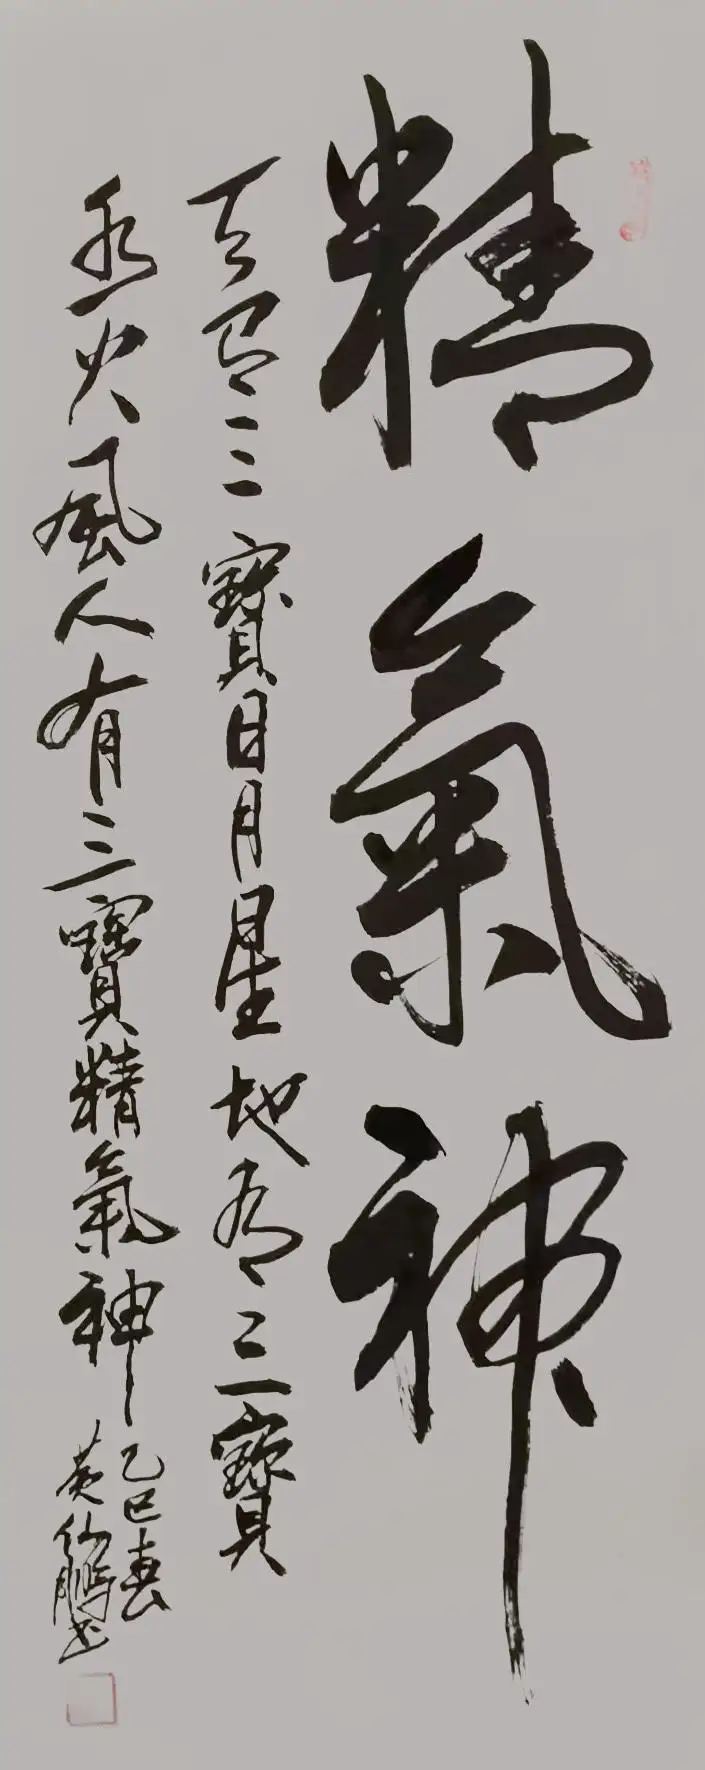 精氣神
天有三寶日月星地有三寶
水火風人有三寶精氣神
乙巳春
黄仙鹏书